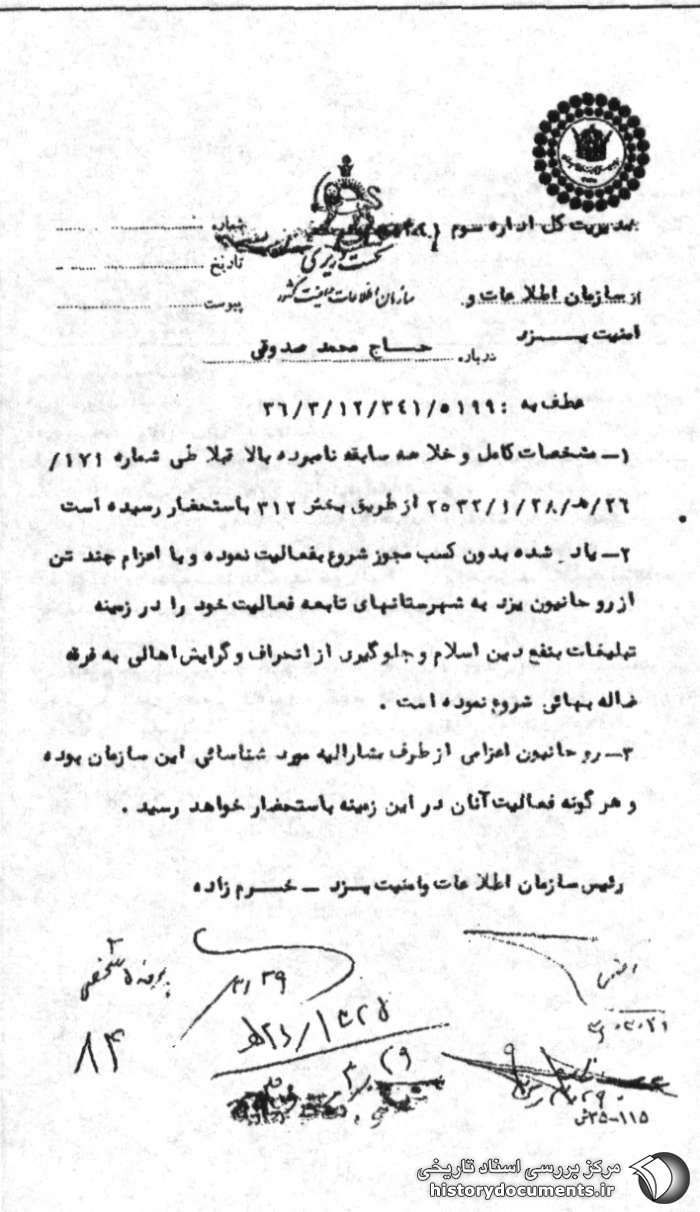 مدیریت کل اداره سوم
شماره
نخست وزیری
تاریخ
سازمان اطلاعات و امنیت کشور
از سازمان اطلاعات و
پیوست
امنیت یزد
درباره حاج محمد صدوقی
عطف به : ۳۶/۳/۱۲/۳۴۱/۵۱۹۹
۱- مشخصات کامل و خلاصه سابقه نامبرده بالا قبلا طی شماره ۱۷۱/
۲۶/هـ/۲۵۳۲/۱/۲۸ از طریق بخش ۳۱۲ باستحضار رسیده است
۲- یاد شده بدون کسب مجوز شروع بفعالیت نموده و با اعزام چند تن
از روحانیون یزد به شهرستانهای تابعه فعالیت خود را در زمینه
تبلیغات بنفع دین اسلام و جلوگیری از انحراف و گرایش اهالی به فرقه
ضاله بهائی شروع نموده است .
۳- روحانیون اعزامی از طرف مشارالیه مورد شناسائی این سازمان بوده
و هر گونه فعالیت آنان در این زمینه باستحضار خواهد رسید .
رئیس سازمان اطلاعات و امنیت یزد - خرم زاده
۸۴
۳۵-۱۱۵ش
مرکز بررسی اسناد تاریخی
historydocuments.ir